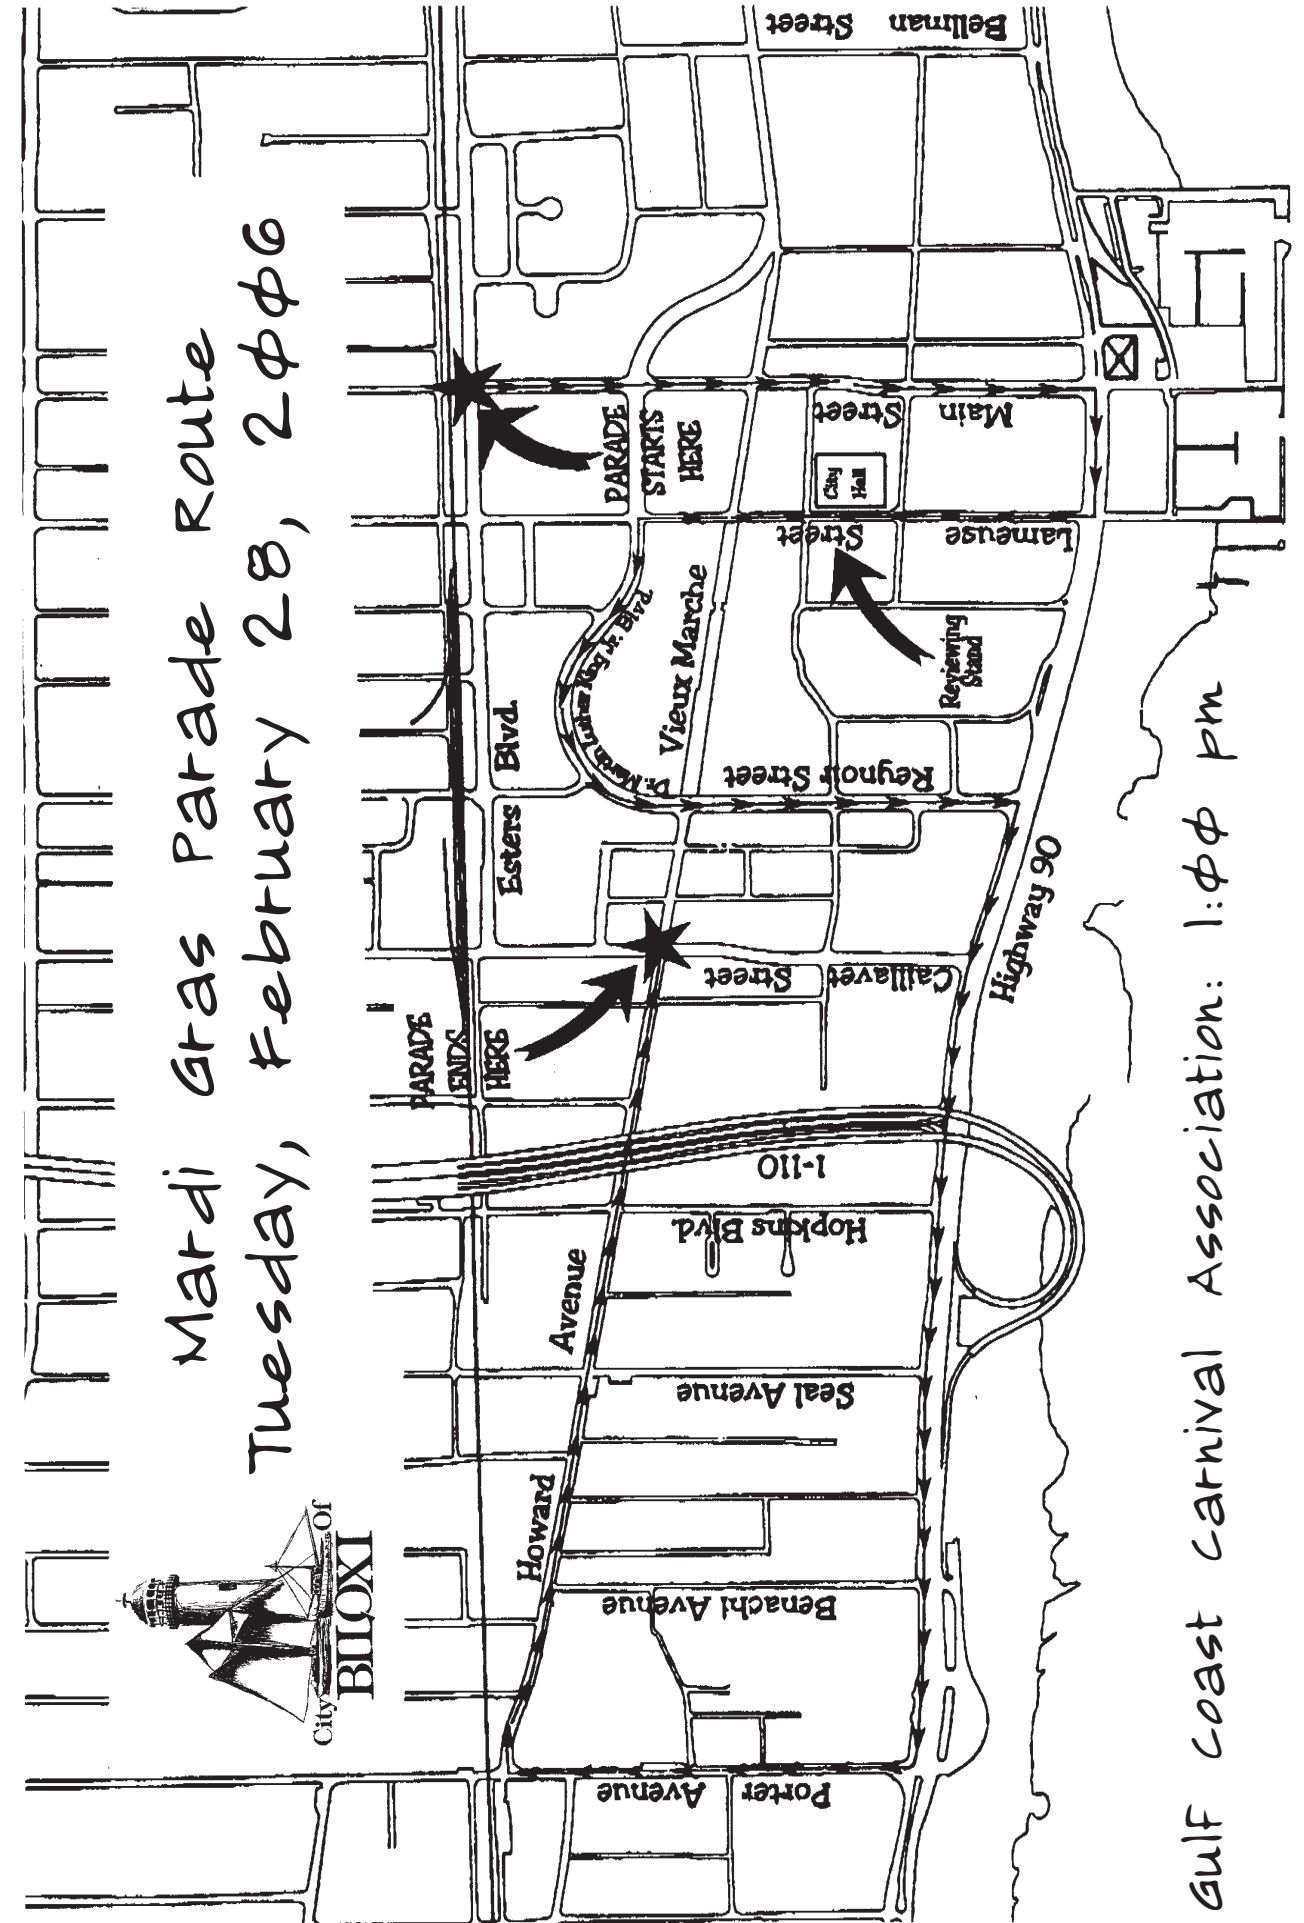 Mardi Gras Parade Route
Tuesday, February 28, 2006
City Of
BILOXI
PARADE
ENDS
HERE
PARADE
STARTS
HERE
Esters Blvd.
Dr. Martin Luther King Jr. Blvd.
Howard Avenue
Vieux Marche
City
Hall
Reviewing
Stand
Porter Avenue
Benachi Avenue
Seal Avenue
Hopkins Blvd.
I-110
Caillavet Street
Reynoir Street
Lameuse Street
Main Street
Bellman Street
Highway 90
Gulf Coast Carnival Association: 1:00 pm